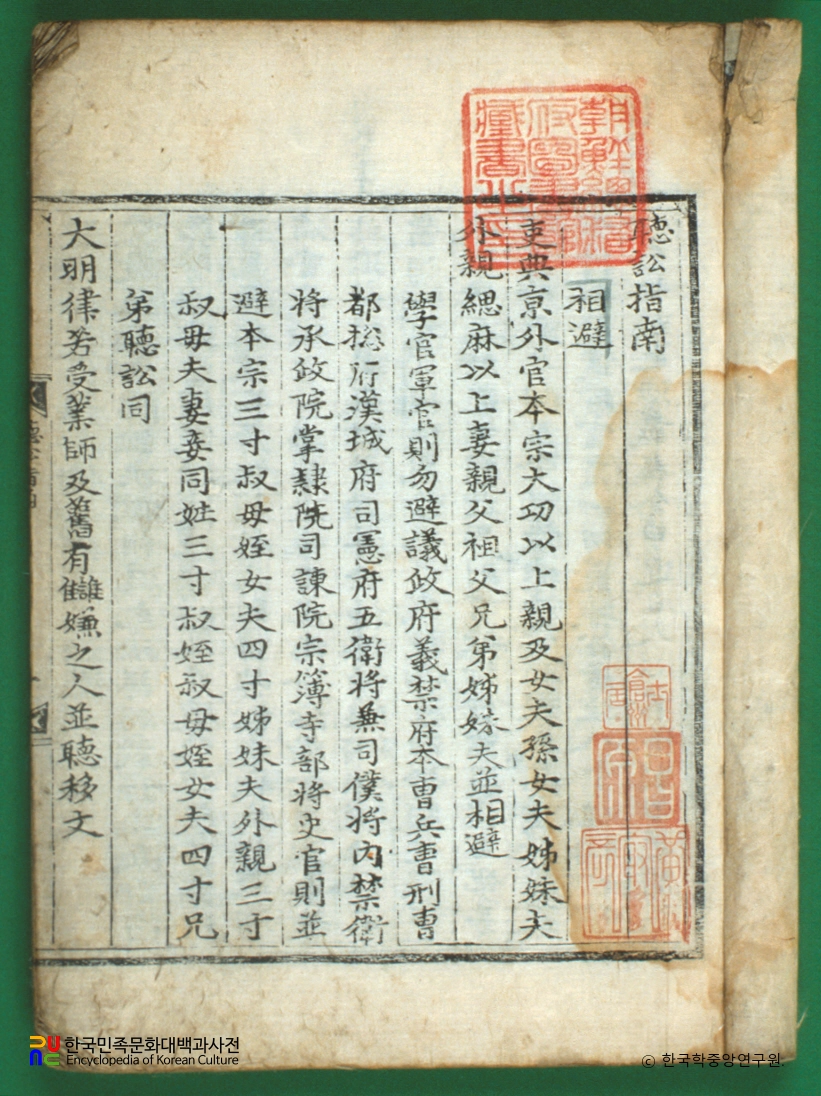 聽訟指南
相避
吏典京外官本宗大功以上親及女夫孫女夫姊妹夫
外親緦麻以上妻親父祖父兄弟姊妹夫並相避
學官軍官則勿避議政府義禁府本曹兵曹刑曹
都摠府漢城府司憲府五衛將兼司僕將內禁衛
將承政院掌隷院司諫院宗簿寺部將史官則並
避本宗三寸叔母姪女夫四寸姊妹夫外親三寸
叔母夫妻妾同姓三寸叔姪叔母姪女夫四寸兄
弟聽訟同
大明律若受業師及舊有讎嫌之人並聽移文
朝鮮總督府圖書館藏書之印
한국민족문화대백과사전
Encyclopedia of Korean Culture
© 한국학중앙연구원.